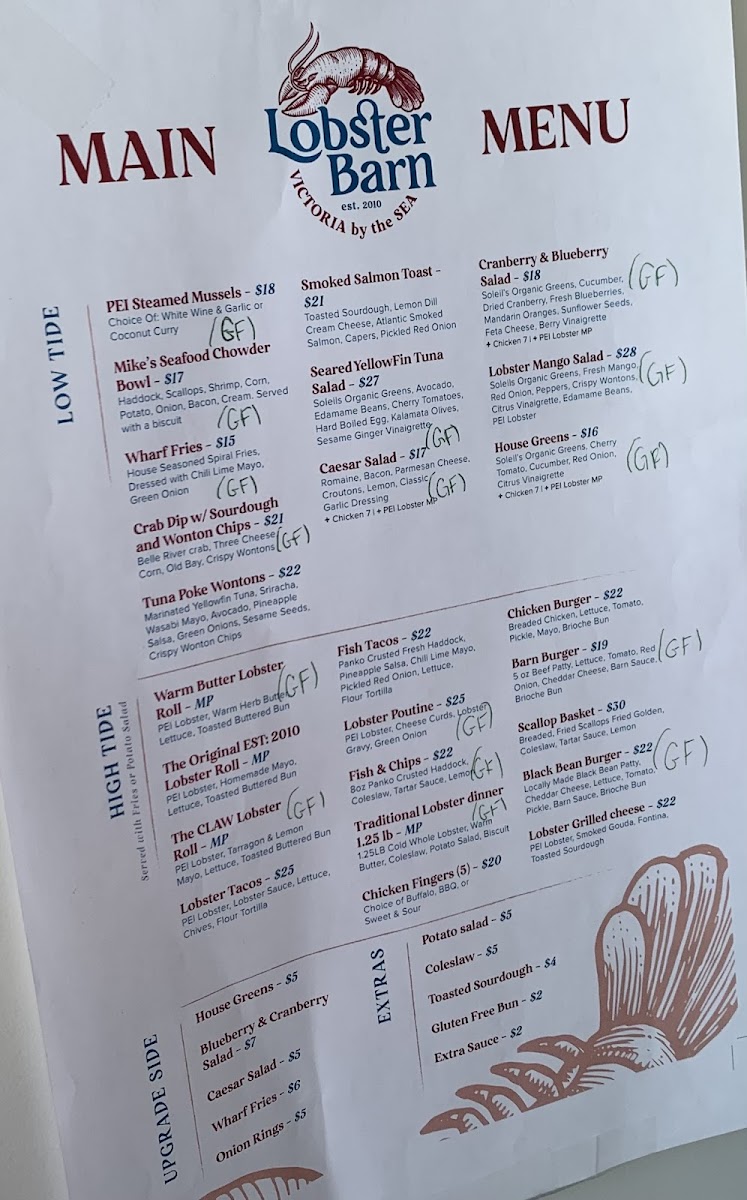 MAIN
Lobster
Barn
VICTORIA by the SEA
est. 2010
MENU
LOW TIDE
PEI Steamed Mussels - $18
Choice Of: White Wine & Garlic or
Coconut Curry
(GF)
Mike's Seafood Chowder
Bowl - $17
Haddock, Scallops, Shrimp, Corn,
Potato, Onion, Bacon, Cream. Served
with a biscuit
(GF)
Wharf Fries - $15
House Seasoned Spiral Fries,
Dressed with Chili Lime Mayo,
Green Onion
(GF)
Crab Dip w/ Sourdough
and Wonton Chips - $21
Belle River crab, Three Cheese,
Corn, Old Bay, Crispy Wontons
(GF)
Tuna Poke Wontons - $22
Marinated Yellowfin Tuna, Sriracha,
Wasabi Mayo, Avocado, Pineapple
Salsa, Green Onions, Sesame Seeds,
Crispy Wonton Chips
Smoked Salmon Toast -
$21
Toasted Sourdough, Lemon Dill
Cream Cheese, Atlantic Smoked
Salmon, Capers, Pickled Red Onion
Seared YellowFin Tuna
Salad - $27
Soleils Organic Greens, Avocado,
Edamame Beans, Cherry Tomatoes,
Hard Boiled Egg, Kalamata Olives,
Sesame Ginger Vinaigrette
(GF)
Caesar Salad - $17
Romaine, Bacon, Parmesan Cheese,
Croutons, Lemon, Classic
Garlic Dressing
(GF)
+ Chicken 7 | + PEI Lobster MP
Cranberry & Blueberry
Salad - $18
Soleil's Organic Greens, Cucumber,
Dried Cranberry, Fresh Blueberries,
Mandarin Oranges, Sunflower Seeds,
Feta Cheese, Berry Vinaigrette
+ Chicken 7 | + PEI Lobster MP
(GF)
Lobster Mango Salad - $28
Soleils Organic Greens, Fresh Mango,
Red Onion, Peppers, Crispy Wontons,
Citrus Vinaigrette, Edamame Beans,
PEI Lobster
(GF)
House Greens - $16
Soleil's Organic Greens, Cherry
Tomato, Cucumber, Red Onion,
Citrus Vinaigrette
+ Chicken 7 | + PEI Lobster MP
(GF)
HIGH TIDE
Served with Fries or Potato Salad
Warm Butter Lobster
Roll - MP
PEI Lobster, Warm Herb Butter
Lettuce, Toasted Buttered Bun
(GF)
The Original EST: 2010
Lobster Roll - MP
PEI Lobster, Homemade Mayo,
Lettuce, Toasted Buttered Bun
The CLAW Lobster
Roll - MP
(GF)
PEI Lobster, Tarragon & Lemon
Mayo, Lettuce, Toasted Buttered Bun
Lobster Tacos - $25
PEI Lobster, Lobster Sauce, Lettuce,
Chives, Flour Tortilla
Fish Tacos - $22
Panko Crusted Fresh Haddock,
Pineapple Salsa, Chili Lime Mayo,
Pickled Red Onion, Lettuce,
Flour Tortilla
Lobster Poutine - $25
PEI Lobster, Cheese Curds, Lobster
Gravy, Green Onion
(GF)
Fish & Chips - $22
8oz Panko Crusted Haddock,
Coleslaw, Tartar Sauce, Lemon
(GF)
Traditional Lobster dinner
1.25 lb - MP
(GF)
1.25LB Cold Whole Lobster, Warm
Butter, Coleslaw, Potato Salad, Biscuit
Chicken Fingers (5) - $20
Choice of Buffalo, BBQ, or
Sweet & Sour
Chicken Burger - $22
Breaded Chicken, Lettuce, Tomato,
Pickle, Mayo, Brioche Bun
Barn Burger - $19
5 oz Beef Patty, Lettuce, Tomato, Red
Onion, Cheddar Cheese, Barn Sauce,
Brioche Bun
(GF)
Scallop Basket - $30
Breaded, Fried Scallops Fried Golden,
Coleslaw, Tartar Sauce, Lemon
Black Bean Burger - $22
Locally Made Black Bean Patty,
Cheddar Cheese, Lettuce, Tomato,
Pickle, Barn Sauce, Brioche Bun
(GF)
Lobster Grilled cheese - $22
PEI Lobster, Smoked Gouda, Fontina,
Toasted Sourdough
UPGRADE SIDE
House Greens - $5
Blueberry & Cranberry
Salad - $7
Caesar Salad - $5
Wharf Fries - $6
Onion Rings - $5
EXTRAS
Potato salad - $5
Coleslaw - $5
Toasted Sourdough - $4
Gluten Free Bun - $2
Extra Sauce - $2